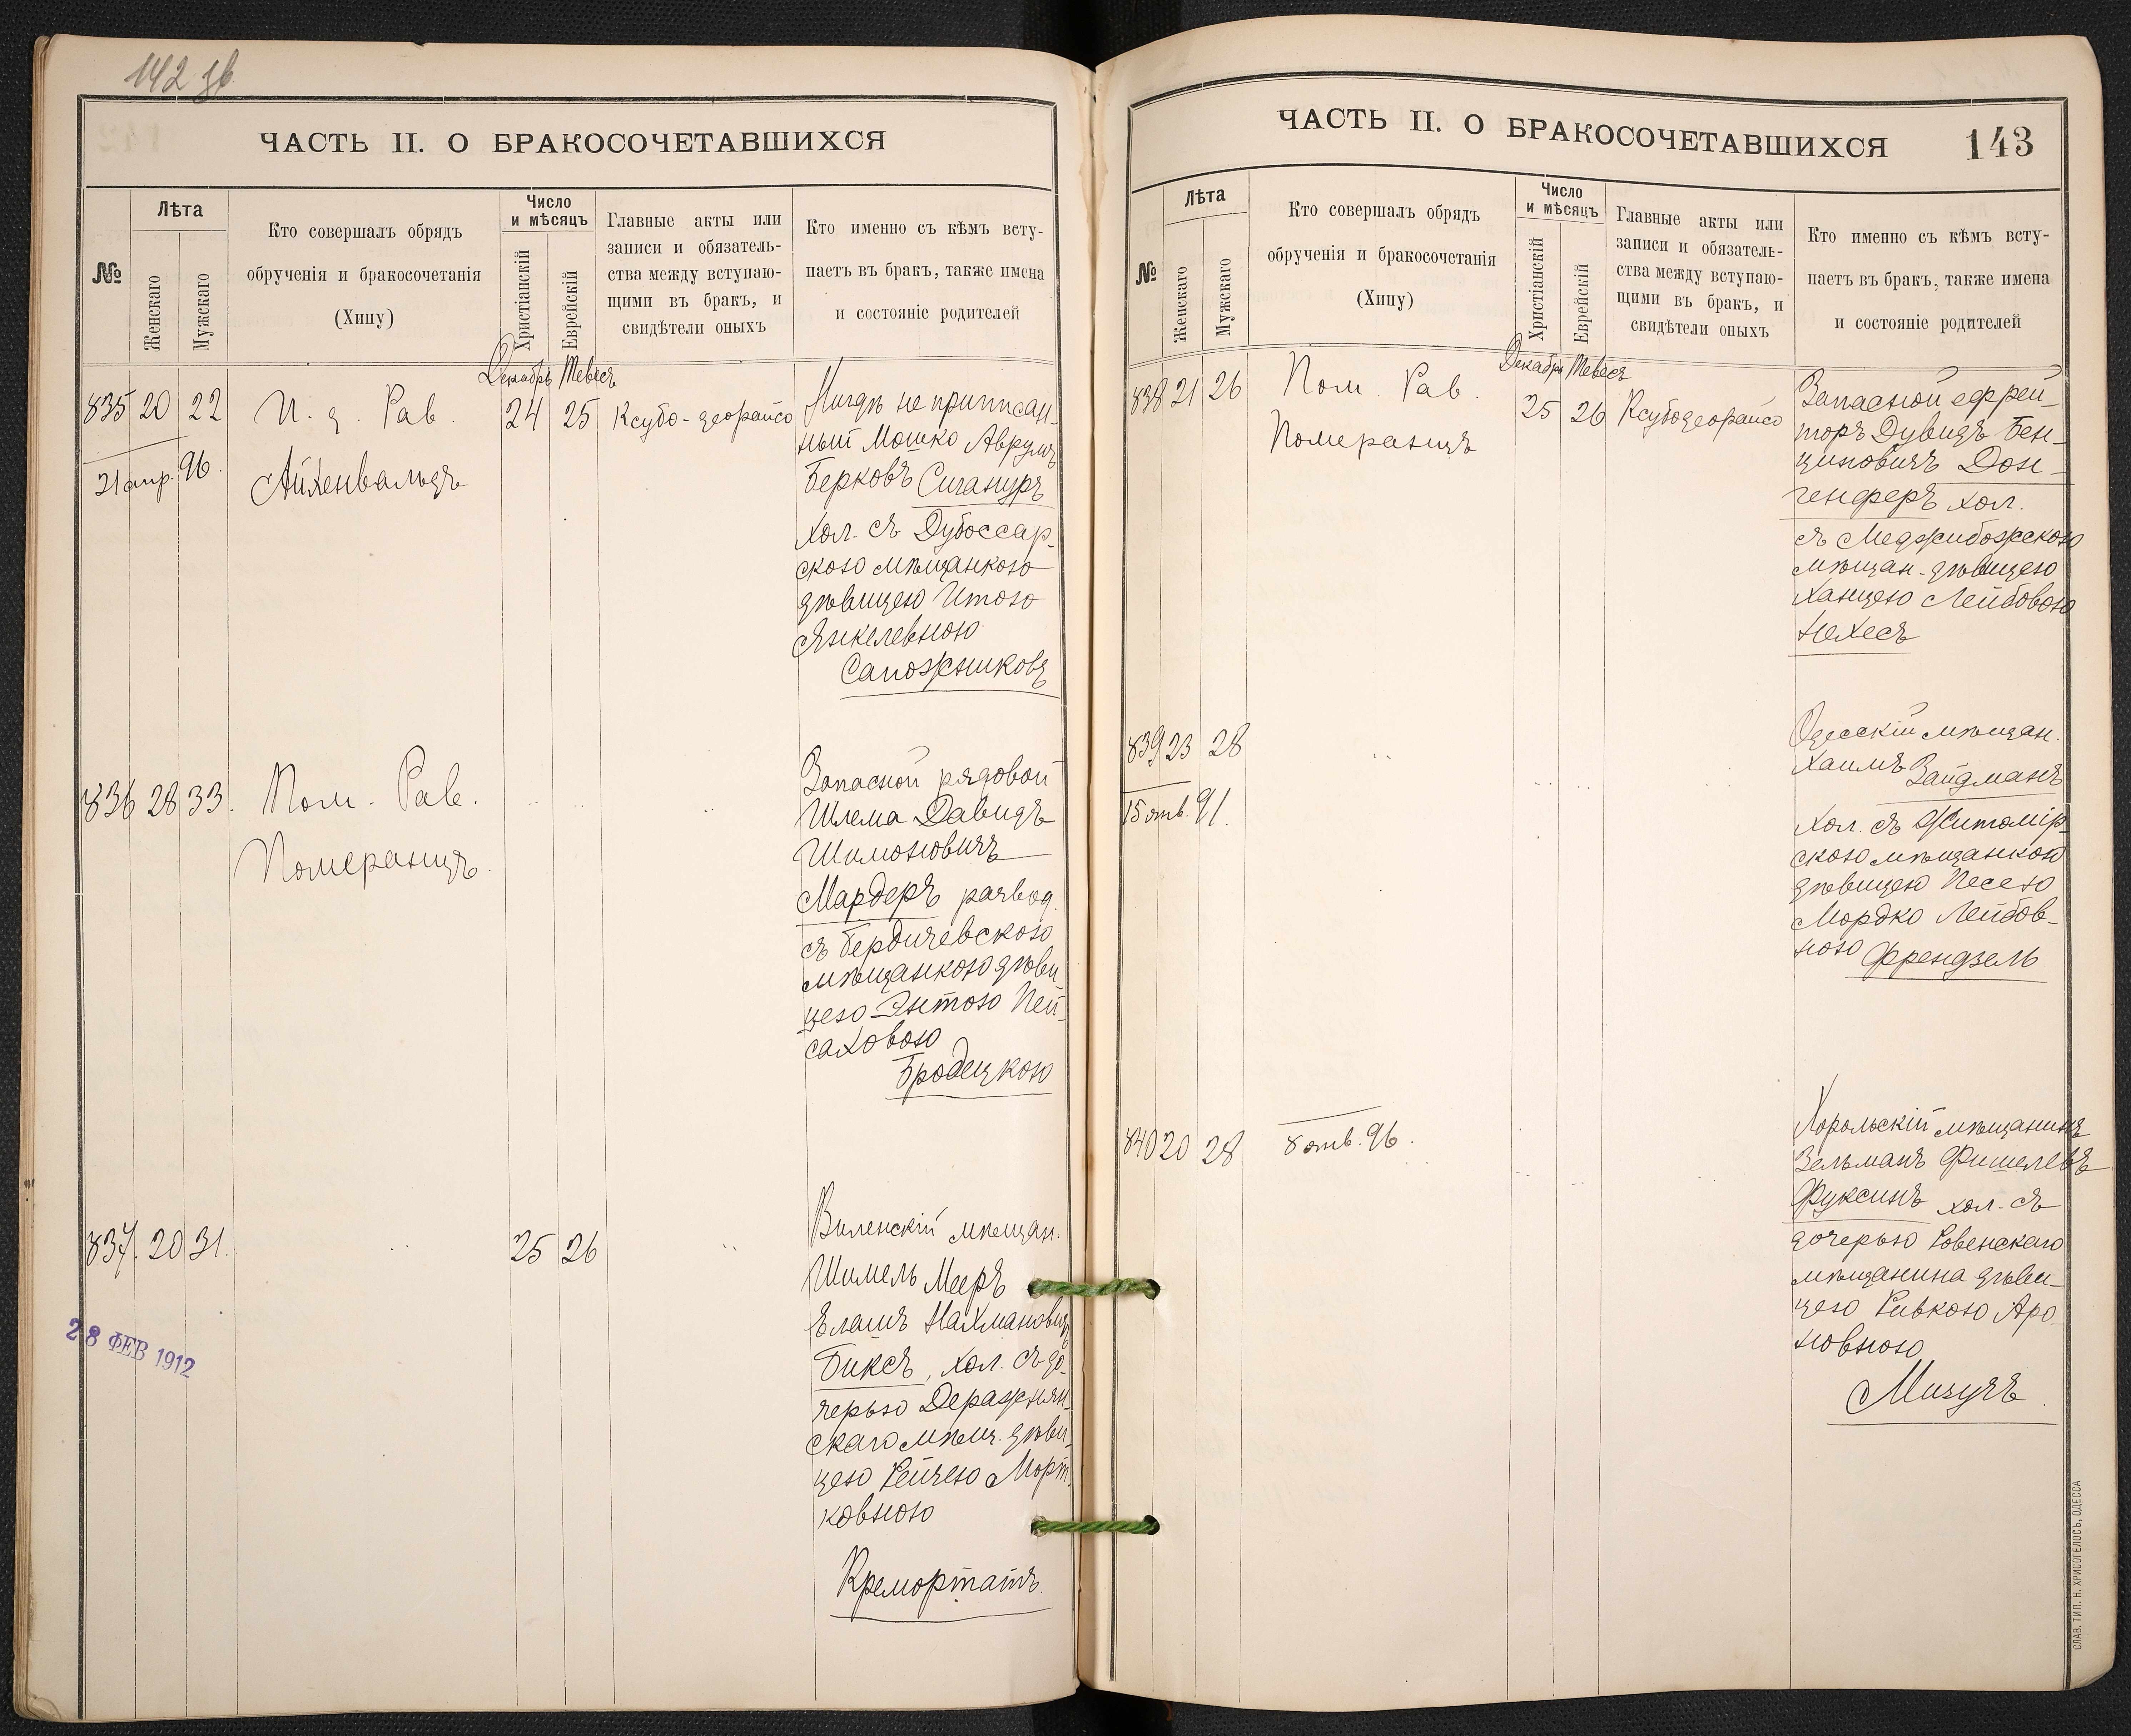 142 зв
ЧАСТЬ II. О БРАКОСОЧЕТАВШИХСЯ
№
Лѣта
Женскаго
Мужскаго
Кто совершалъ обрядъ
обрученія и бракосочетанія
(Хипу)
Число
и мѣсяцъ
Христіанскій
Еврейскій
Главные акты или
записи и обязатель-
ства между вступаю-
щими въ бракъ, и
свидѣтели оныхъ
Кто именно съ кѣмъ всту-
паетъ въ бракъ, также имена
и состояніе родителей
Декабрь Тевесъ
835 20 22 И. д. Рав. 24 25 Ксубо-деорайсо
21 апр. 96.
Айхенвальдъ
Нигдѣ не приписан-
ный Мошко Аврумъ
Берковъ Сигануръ
хол. съ Дубоссар-
скою мѣщанкою
дѣвицею Итою
Янкелевною
Сапожниковъ
836 28 33. Пом. Рав.
Померанцъ.
Запасной рядовой
Шлема Давидъ
Шимоновичъ
Мардеръ развод.
съ Бердичевскою
мѣщанкою дѣви-
цею Энтою Пей-
саховою
Бродецкою
837. 20 31. 25 26
Виленскій мѣщан.
Шимель Мееръ
Елашъ Нахмановичъ
Биксъ, хол. съ до-
черью Деражнян-
скаго мѣщ. дѣви-
цею Рейзею Морт-
ковною
Кремортатъ.
28 ФЕВ 1912
ЧАСТЬ II. О БРАКОСОЧЕТАВШИХСЯ 143
№
Лѣта
Женскаго
Мужскаго
Кто совершалъ обрядъ
обрученія и бракосочетанія
(Хипу)
Число
и мѣсяцъ
Христіанскій
Еврейскій
Главные акты или
записи и обязатель-
ства между вступаю-
щими въ бракъ, и
свидѣтели оныхъ
Кто именно съ кѣмъ всту-
паетъ въ бракъ, также имена
и состояніе родителей
Декабрь Тевесъ
838 21 26 Пом. Рав. 25 26 Ксубодеорайсо
Померанцъ
Запасной ефрей-
торъ Дувидъ Бен-
ционовичъ Дон-
генферъ хол.
съ Меджибожскою
мѣщан. дѣвицею
Ханцею Лейбовою
Нехесъ
839 23 28
15 янв. 91.
Одесскій мѣщан.
Хаимъ Зайдманъ
хол. съ Житомір-
скою мѣщанкою
дѣвицею Песею
Мордко Лейбов-
ною Френдзель
840 20 28 8 янв. 96.
Хорольскій мѣщанинъ
Зельманъ Фишелевъ
Фуксинъ хол. съ
дочерью Ровенскаго
мѣщанина дѣви-
цею Ривкою Аро-
новною
Мизучъ.
СЛАВ. ТИП. Н. ХРИСОГЕЛОСЪ, ОДЕССА